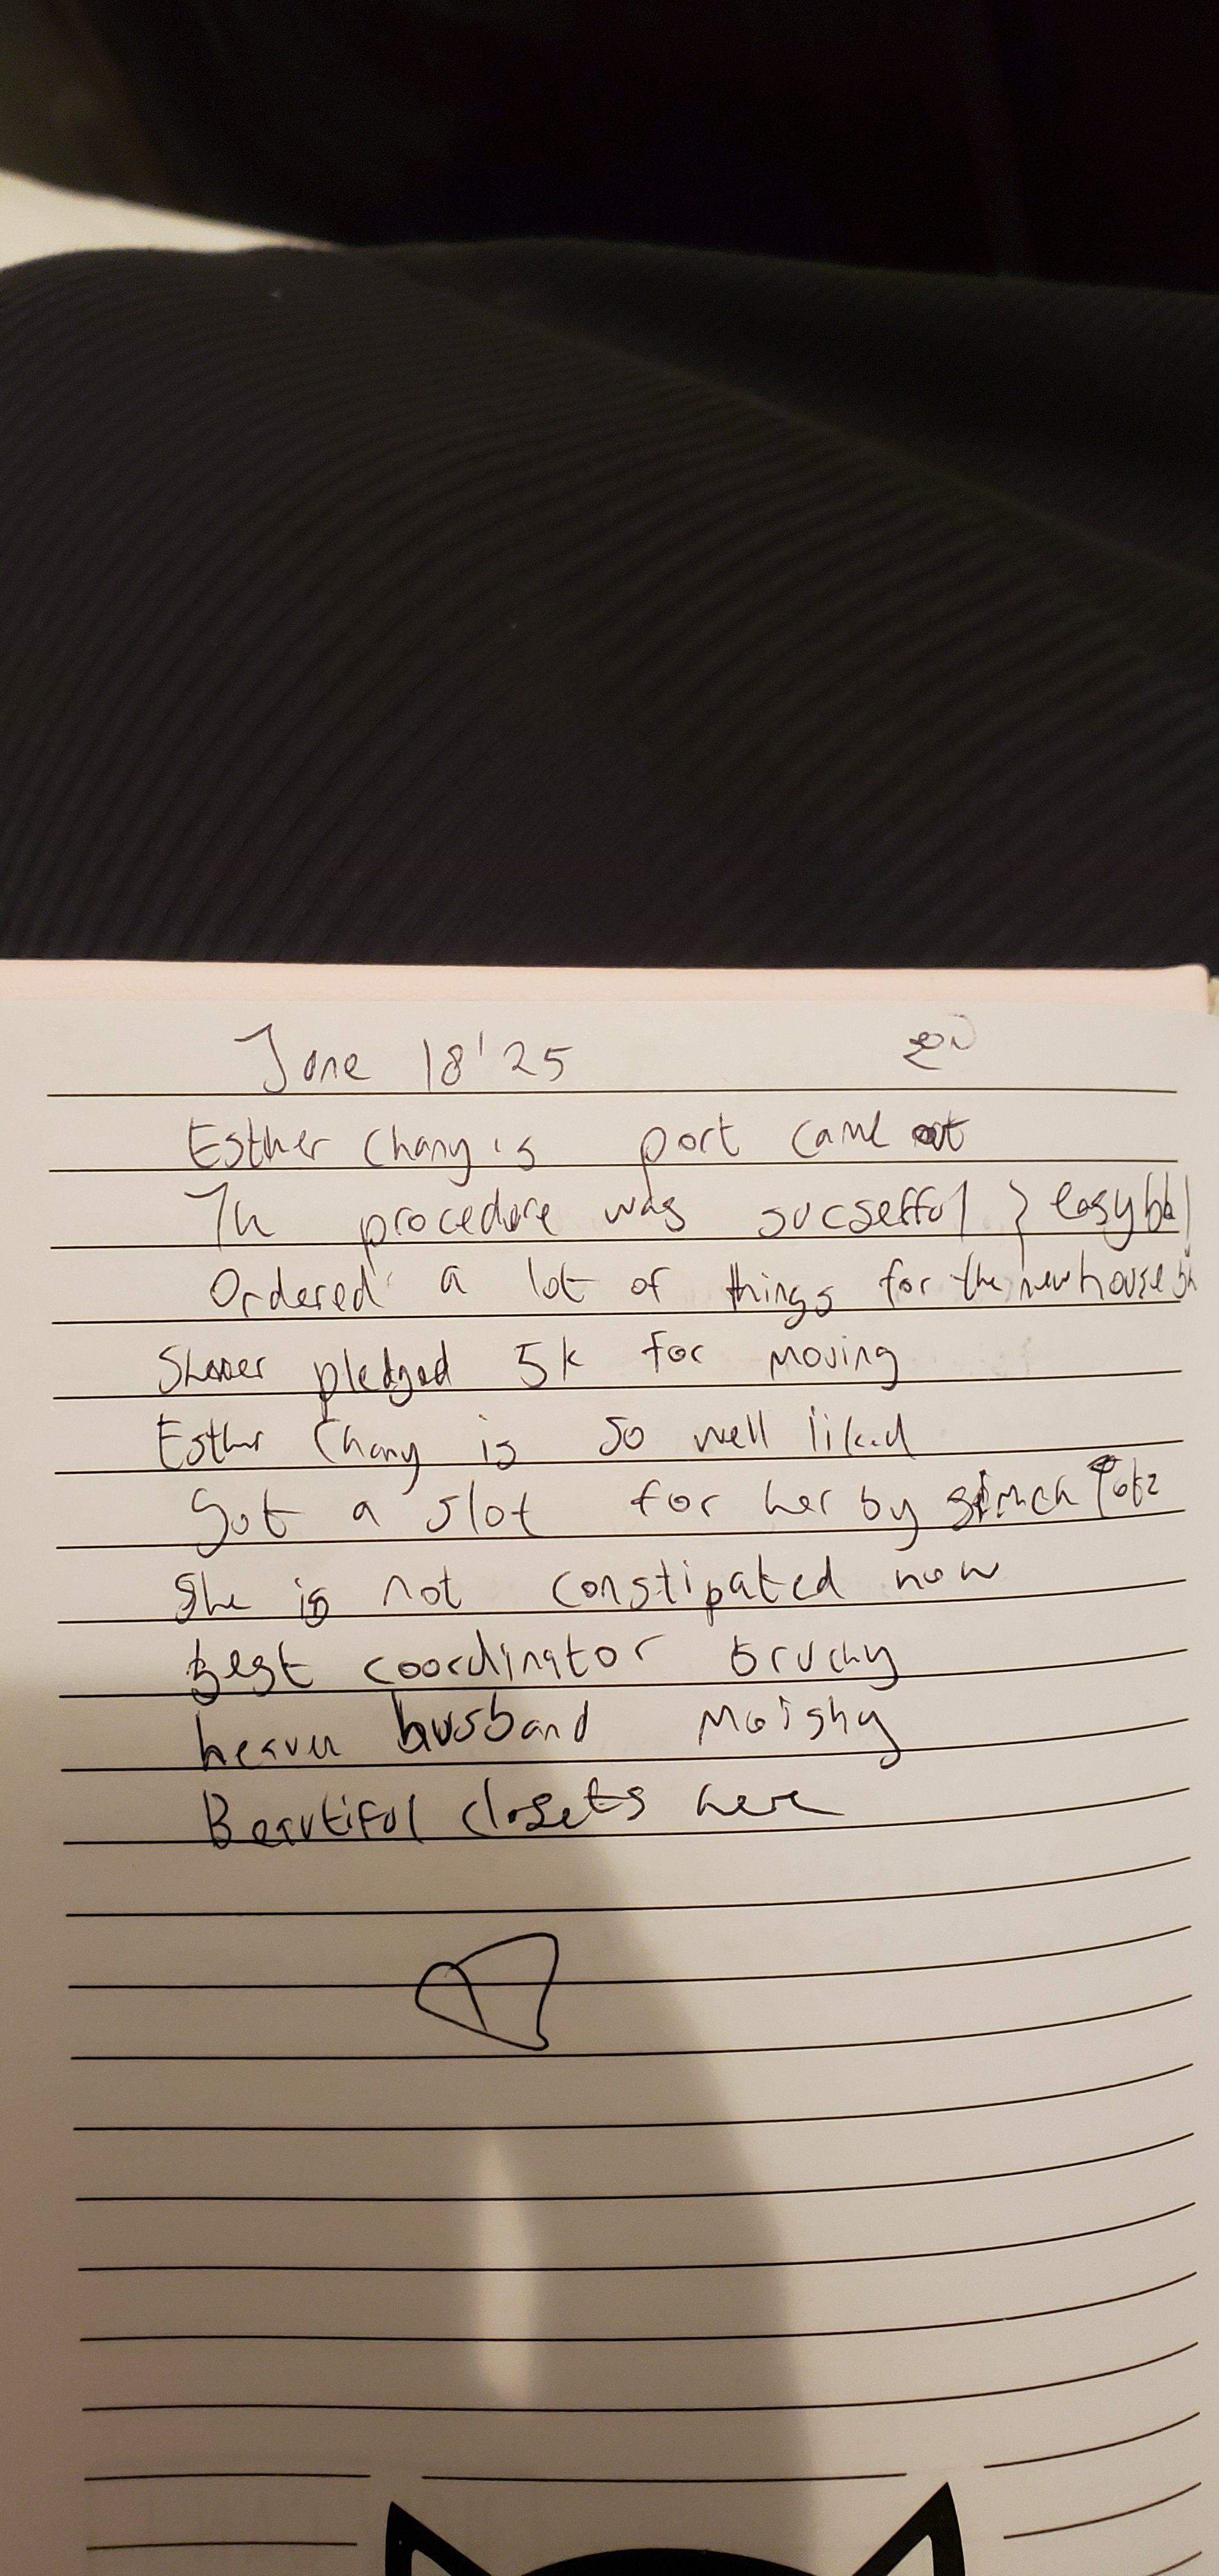 June 18'25
Esther Chany's port came out
The procedure was sucseffful } easy bh
Ordered a lot of things for the new house bh
pledged 5k for moving
Esther Chany is so well liked
Got a slot for her by
She is not constipated now
Best coordinator bruchy
husband Moishy
Beautiful closets here